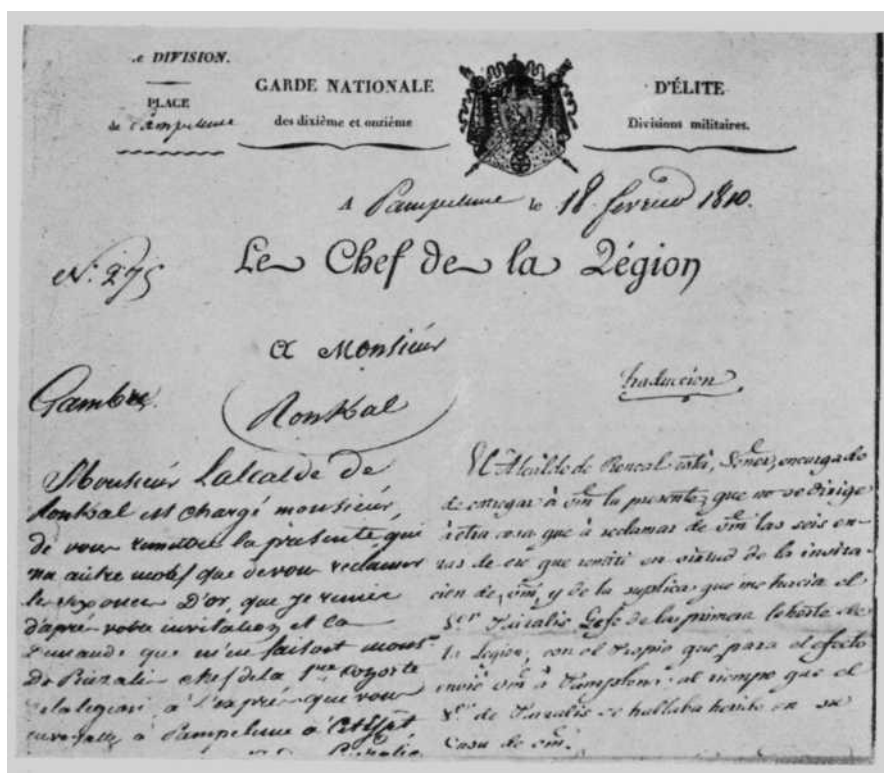 e DIVISION.
PLACE
de Pampelune
GARDE NATIONALE
des dixième et onzième
D'ÉLITE
Divisions militaires.
A Pampelune le 18 fevrier 1810.
N.º 275
Le Chef de la Légion
A Monsieur
Gambra
Ronkal
Monsieur Lalcalde de
Ronkal est chargé monsieur,
de vous remettre la présente qui
na autre motif que de vous réclamer
les six onces D'or, que je remis
d'après votre invitation et la
Demande que m'en faisoit monsr
De chef de la 1ere Coyorte
de la légion, à l'exprès que vous
à Pampelune à
traduccion
El Alcalde de Roncal está, Señor, encargado
de entregar à Vm la presente, que no se dirige
à otra cosa que à reclamar de Vm las seis on-
zas de oro que remití en virtud de la invita-
cion de Vm, y de la suplica que me hacia el
Sor Gefe de la primera Cohorte de
la Legion, con el Propio que para el efecto
envió Vm à Pamplona, al tiempo que el
Sor de se hallaba herido en su
Casa de Vm.